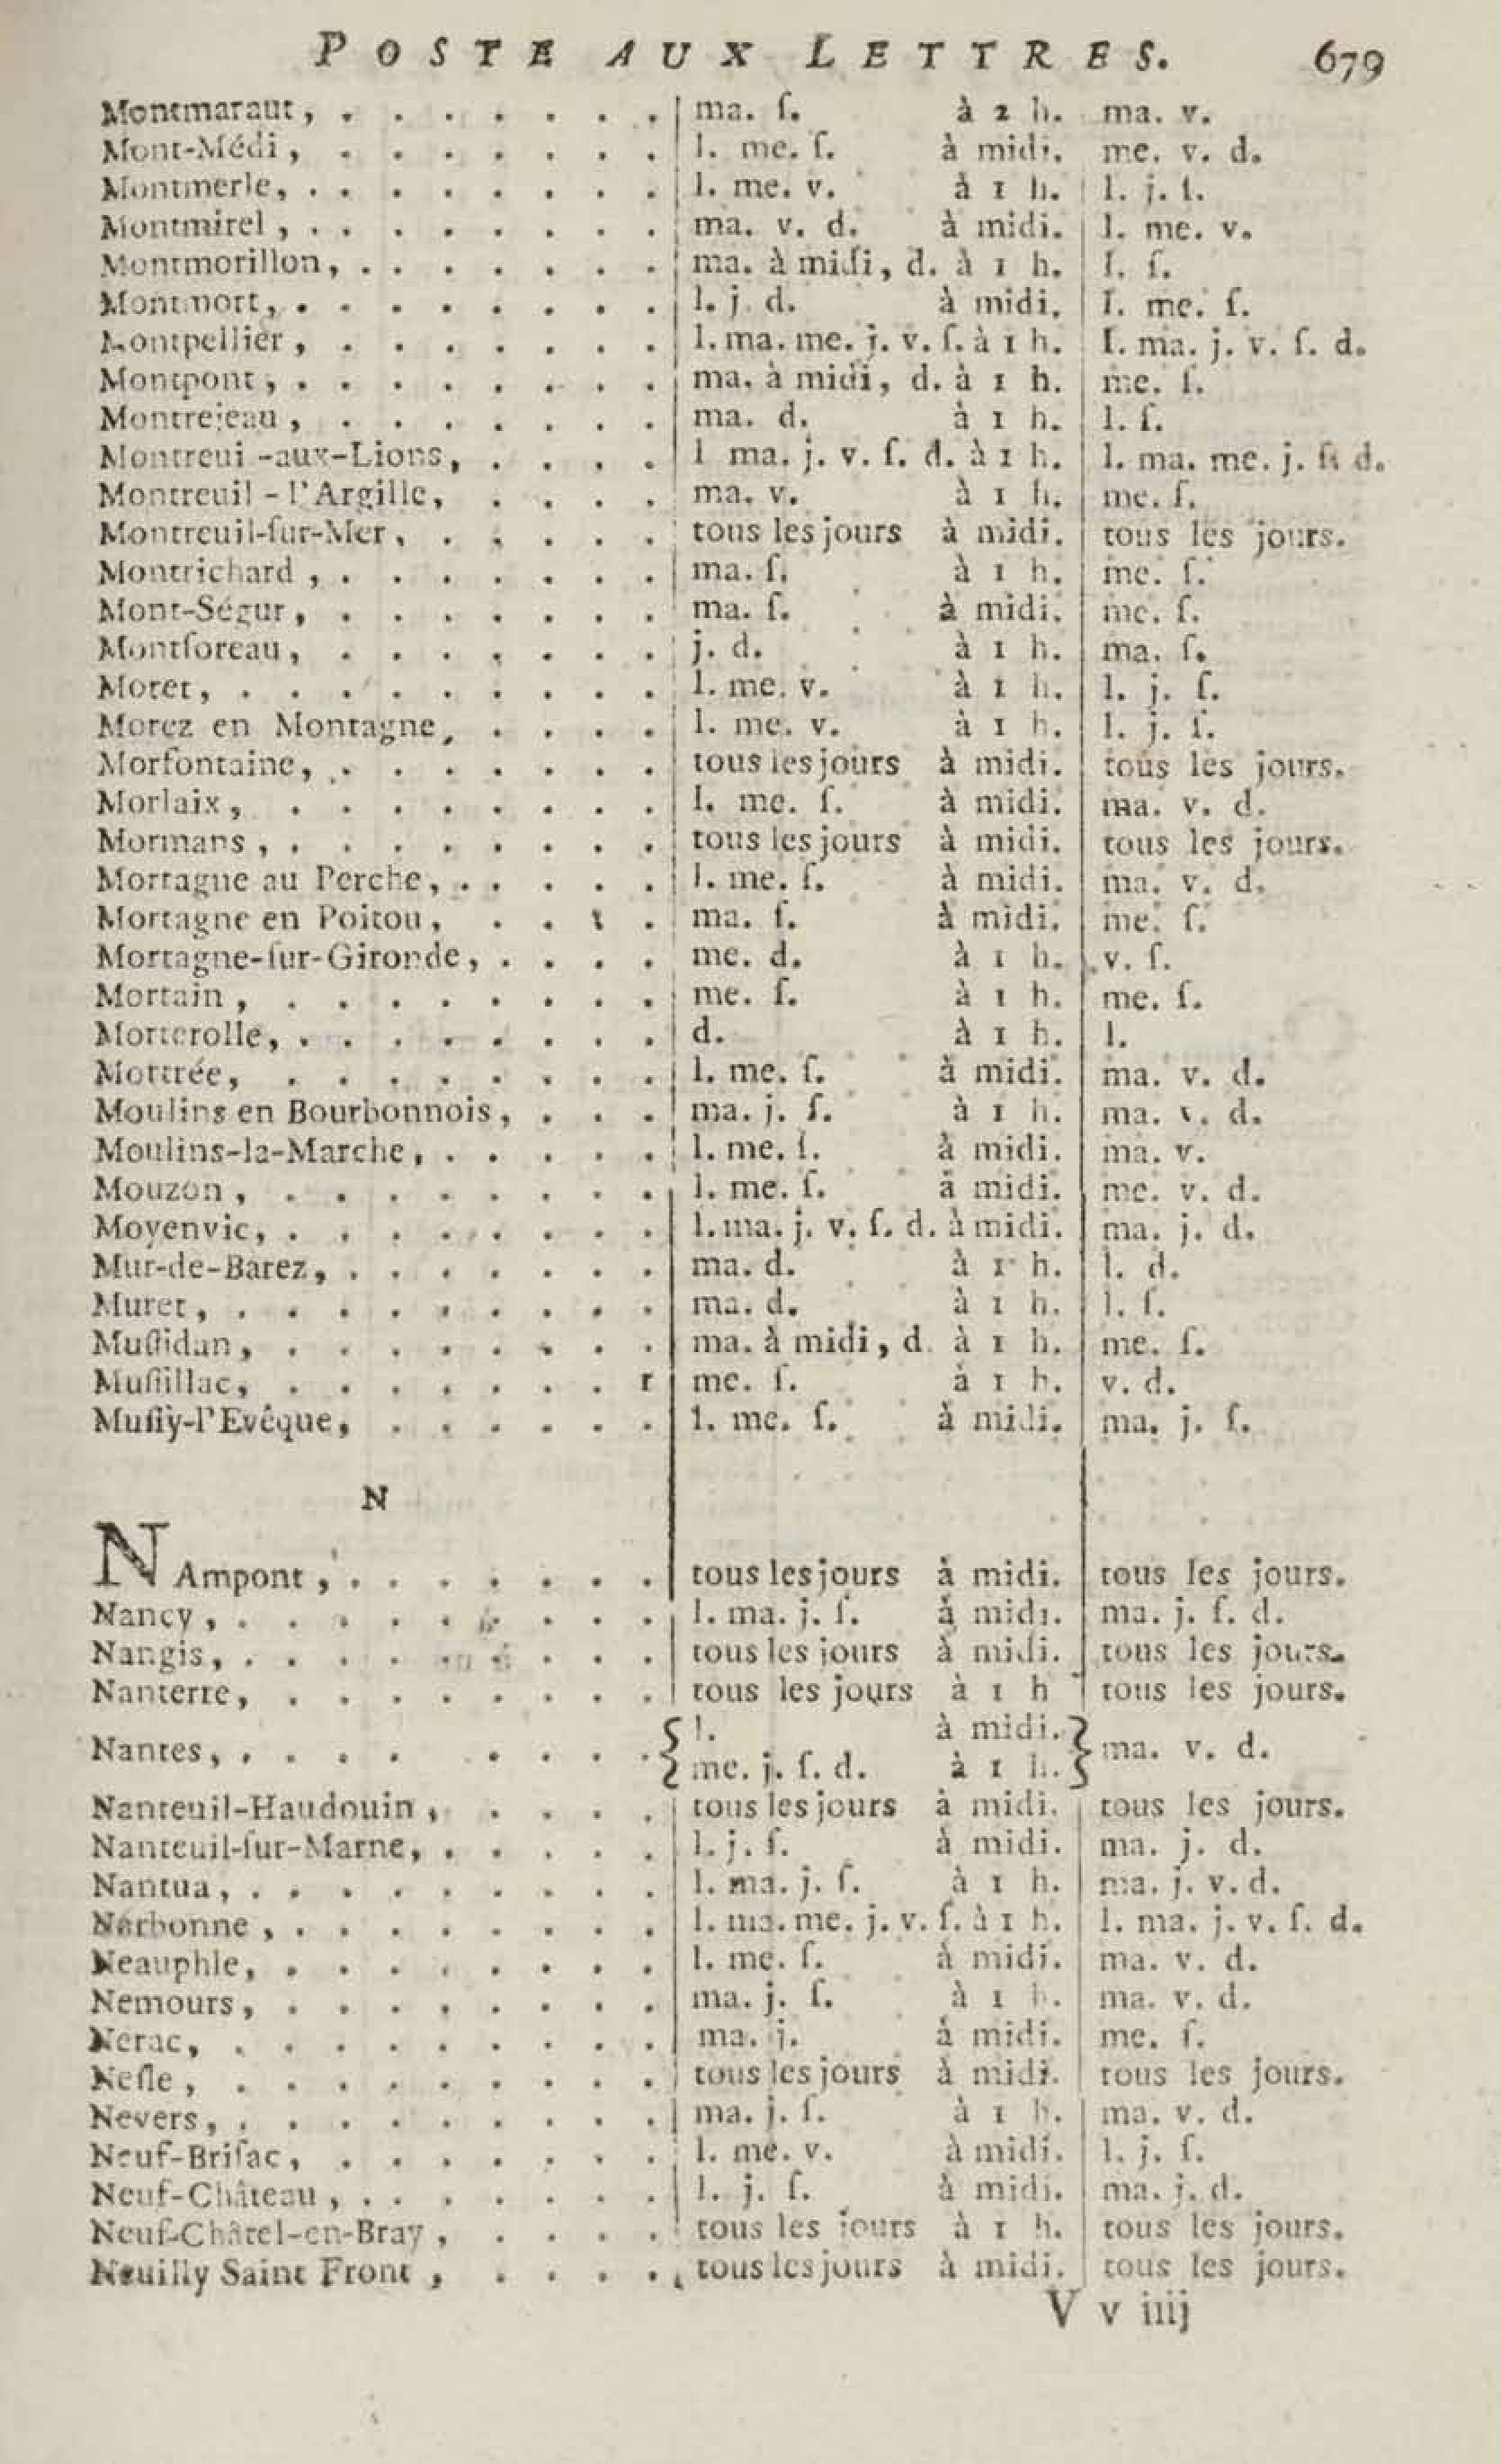 POSTE AUX LETTRES. 679
Montmaraut, . . . . . . . ma. ſ. à 2 h. ma. v.
Mont-Médi, . . . . . . . l. me. ſ. à midi. me. v. d.
Montmerle, . . . . . . . . l. me. v. à 1 h. l. j. ſ.
Montmirel, . . . . . . . . ma. v. d. à midi. l. me. v.
Montmorillon, . . . . . . . ma. à midi, d. à 1 h. l. ſ.
Montmort, . . . . . . . . l. j. d. à midi. l. me. ſ.
Montpellier, . . . . . . . l. ma. me. j. v. ſ. à 1 h. l. ma. j. v. ſ. d.
Montpont, . . . . . . . . ma. à midi, d. à 1 h. me. ſ.
Montrejeau, . . . . . . . ma. d. à 1 h. l. ſ.
Montreui -aux-Lions, . . . . l ma. j. v. ſ. d. à 1 h. l. ma. me. j. ſ. d.
Montreuil - l'Argille, . . . . ma. v. à 1 h. me. ſ.
Montreuil-ſur-Mer, . . . . . tous les jours à midi. tous les jours.
Montrichard, . . . . . . . ma. ſ. à 1 h. me. ſ.
Mont-Ségur, . . . . . . . ma. ſ. à midi. me. ſ.
Montſoreau, . . . . . . . j. d. à 1 h. ma. ſ.
Moret, . . . . . . . . . l. me. v. à 1 h. l. j. ſ.
Morez en Montagne, . . . . l. me. v. à 1 h. l. j. ſ.
Morfontaine, . . . . . . . tous les jours à midi. tous les jours.
Morlaix, . . . . . . . . l. me. ſ. à midi. ma. v. d.
Mormans, . . . . . . . . tous les jours à midi. tous les jours.
Mortagne au Perche, . . . . . l. me. ſ. à midi. ma. v. d.
Mortagne en Poitou, . . . . ma. ſ. à midi. me. ſ.
Mortagne-ſur-Gironde, . . . . me. d. à 1 h. v. ſ.
Mortain, . . . . . . . . me. ſ. à 1 h. me. ſ.
Morterolle, . . . . . . . . d. à 1 h. l.
Mortrée, . . . . . . . . l. me. ſ. à midi. ma. v. d.
Moulins en Bourbonnois, . . . ma. j. ſ. à 1 h. ma. v. d.
Moulins-la-Marche, . . . . . l. me. ſ. à midi. ma. v.
Mouzon, . . . . . . . . l. me. ſ. à midi. me. v. d.
Moyenvic, . . . . . . . . l. ma. j. v. ſ. d. à midi. ma. j. d.
Mur-de-Barez, . . . . . . . ma. d. à 1 h. l. d.
Muret, . . . . . . . . . ma. d. à 1 h. l. ſ.
Muſſidan, . . . . . . . . ma. à midi, d. à 1 h. me. ſ.
Muſſillac, . . . . . . . r me. ſ. à 1 h. v. d.
Muſſy-l'Evêque, . . . . . . l. me. ſ. à midi. ma. j. ſ.
N
NAmpont, . . . . . . . tous les jours à midi. tous les jours.
Nancy, . . . . . . . . . l. ma. j. ſ. à midi. ma. j. ſ. d.
Nangis, . . . . . . . . . tous les jours à midi. tous les jours.
Nanterre, . . . . . . . . tous les jours à 1 h tous les jours.
l. à midi.
Nantes, . . . . . . . . ma. v. d.
me. j. ſ. d. à 1 h.
Nanteuil-Haudouin, . . . . tous les jours à midi. tous les jours.
Nanteuil-ſur-Marne, . . . . . l. j. ſ. à midi. ma. j. d.
Nantua, . . . . . . . . . l. ma. j. ſ. à 1 h. ma. j. v. d.
Narbonne, . . . . . . . . l. ma. me. j. v. ſ. à 1 h. l. ma. j. v. ſ. d.
Neauphle, . . . . . . . . l. me. ſ. à midi. ma. v. d.
Nemours, . . . . . . . . ma. j. ſ. à 1 h. ma. v. d.
Nerac, . . . . . . . . . ma. j. à midi. me. ſ.
Neſle, . . . . . . . . . tous les jours à midi. tous les jours.
Nevers, . . . . . . . . . ma. j. ſ. à 1 h. ma. v. d.
Neuf-Briſac, . . . . . . . l. me. v. à midi. l. j. ſ.
Neuf-Château, . . . . . . . l. j. ſ. à midi. ma. j. d.
Neuf-Châtel-en-Bray, . . . . tous les jours à 1 h. tous les jours.
Neuilly Saint Front, . . . . tous les jours à midi. tous les jours.
V v iiij